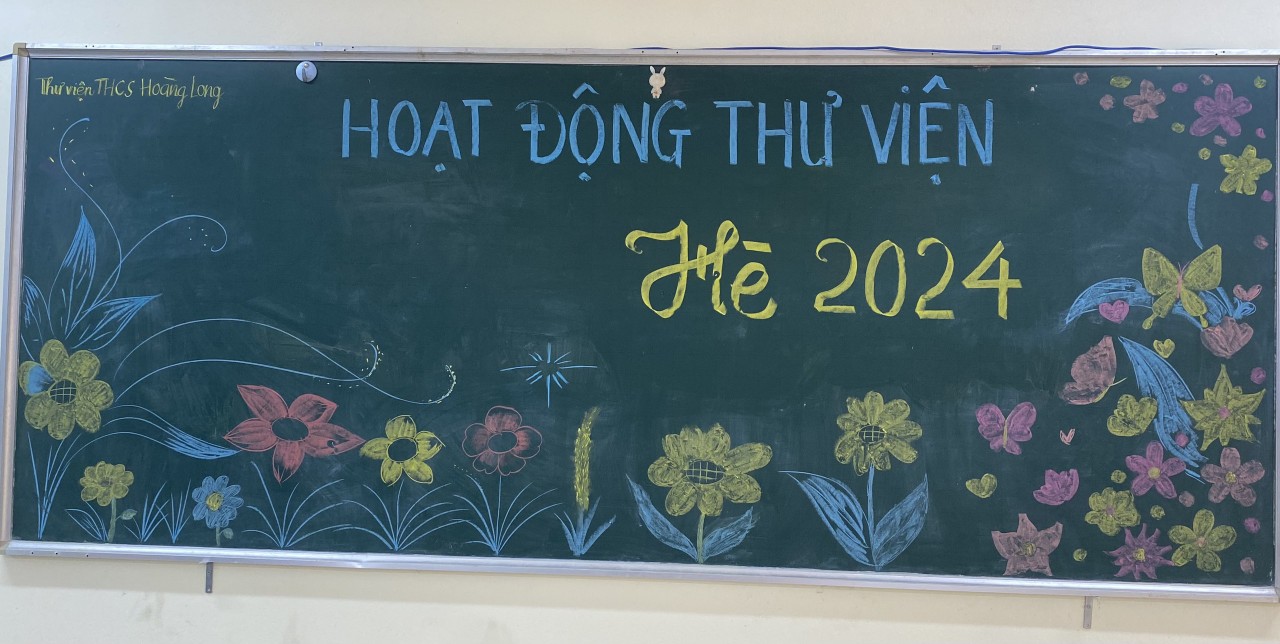 Thư viện THCS Hoàng Long
HOẠT ĐỘNG THƯ VIỆN
Hè 2024